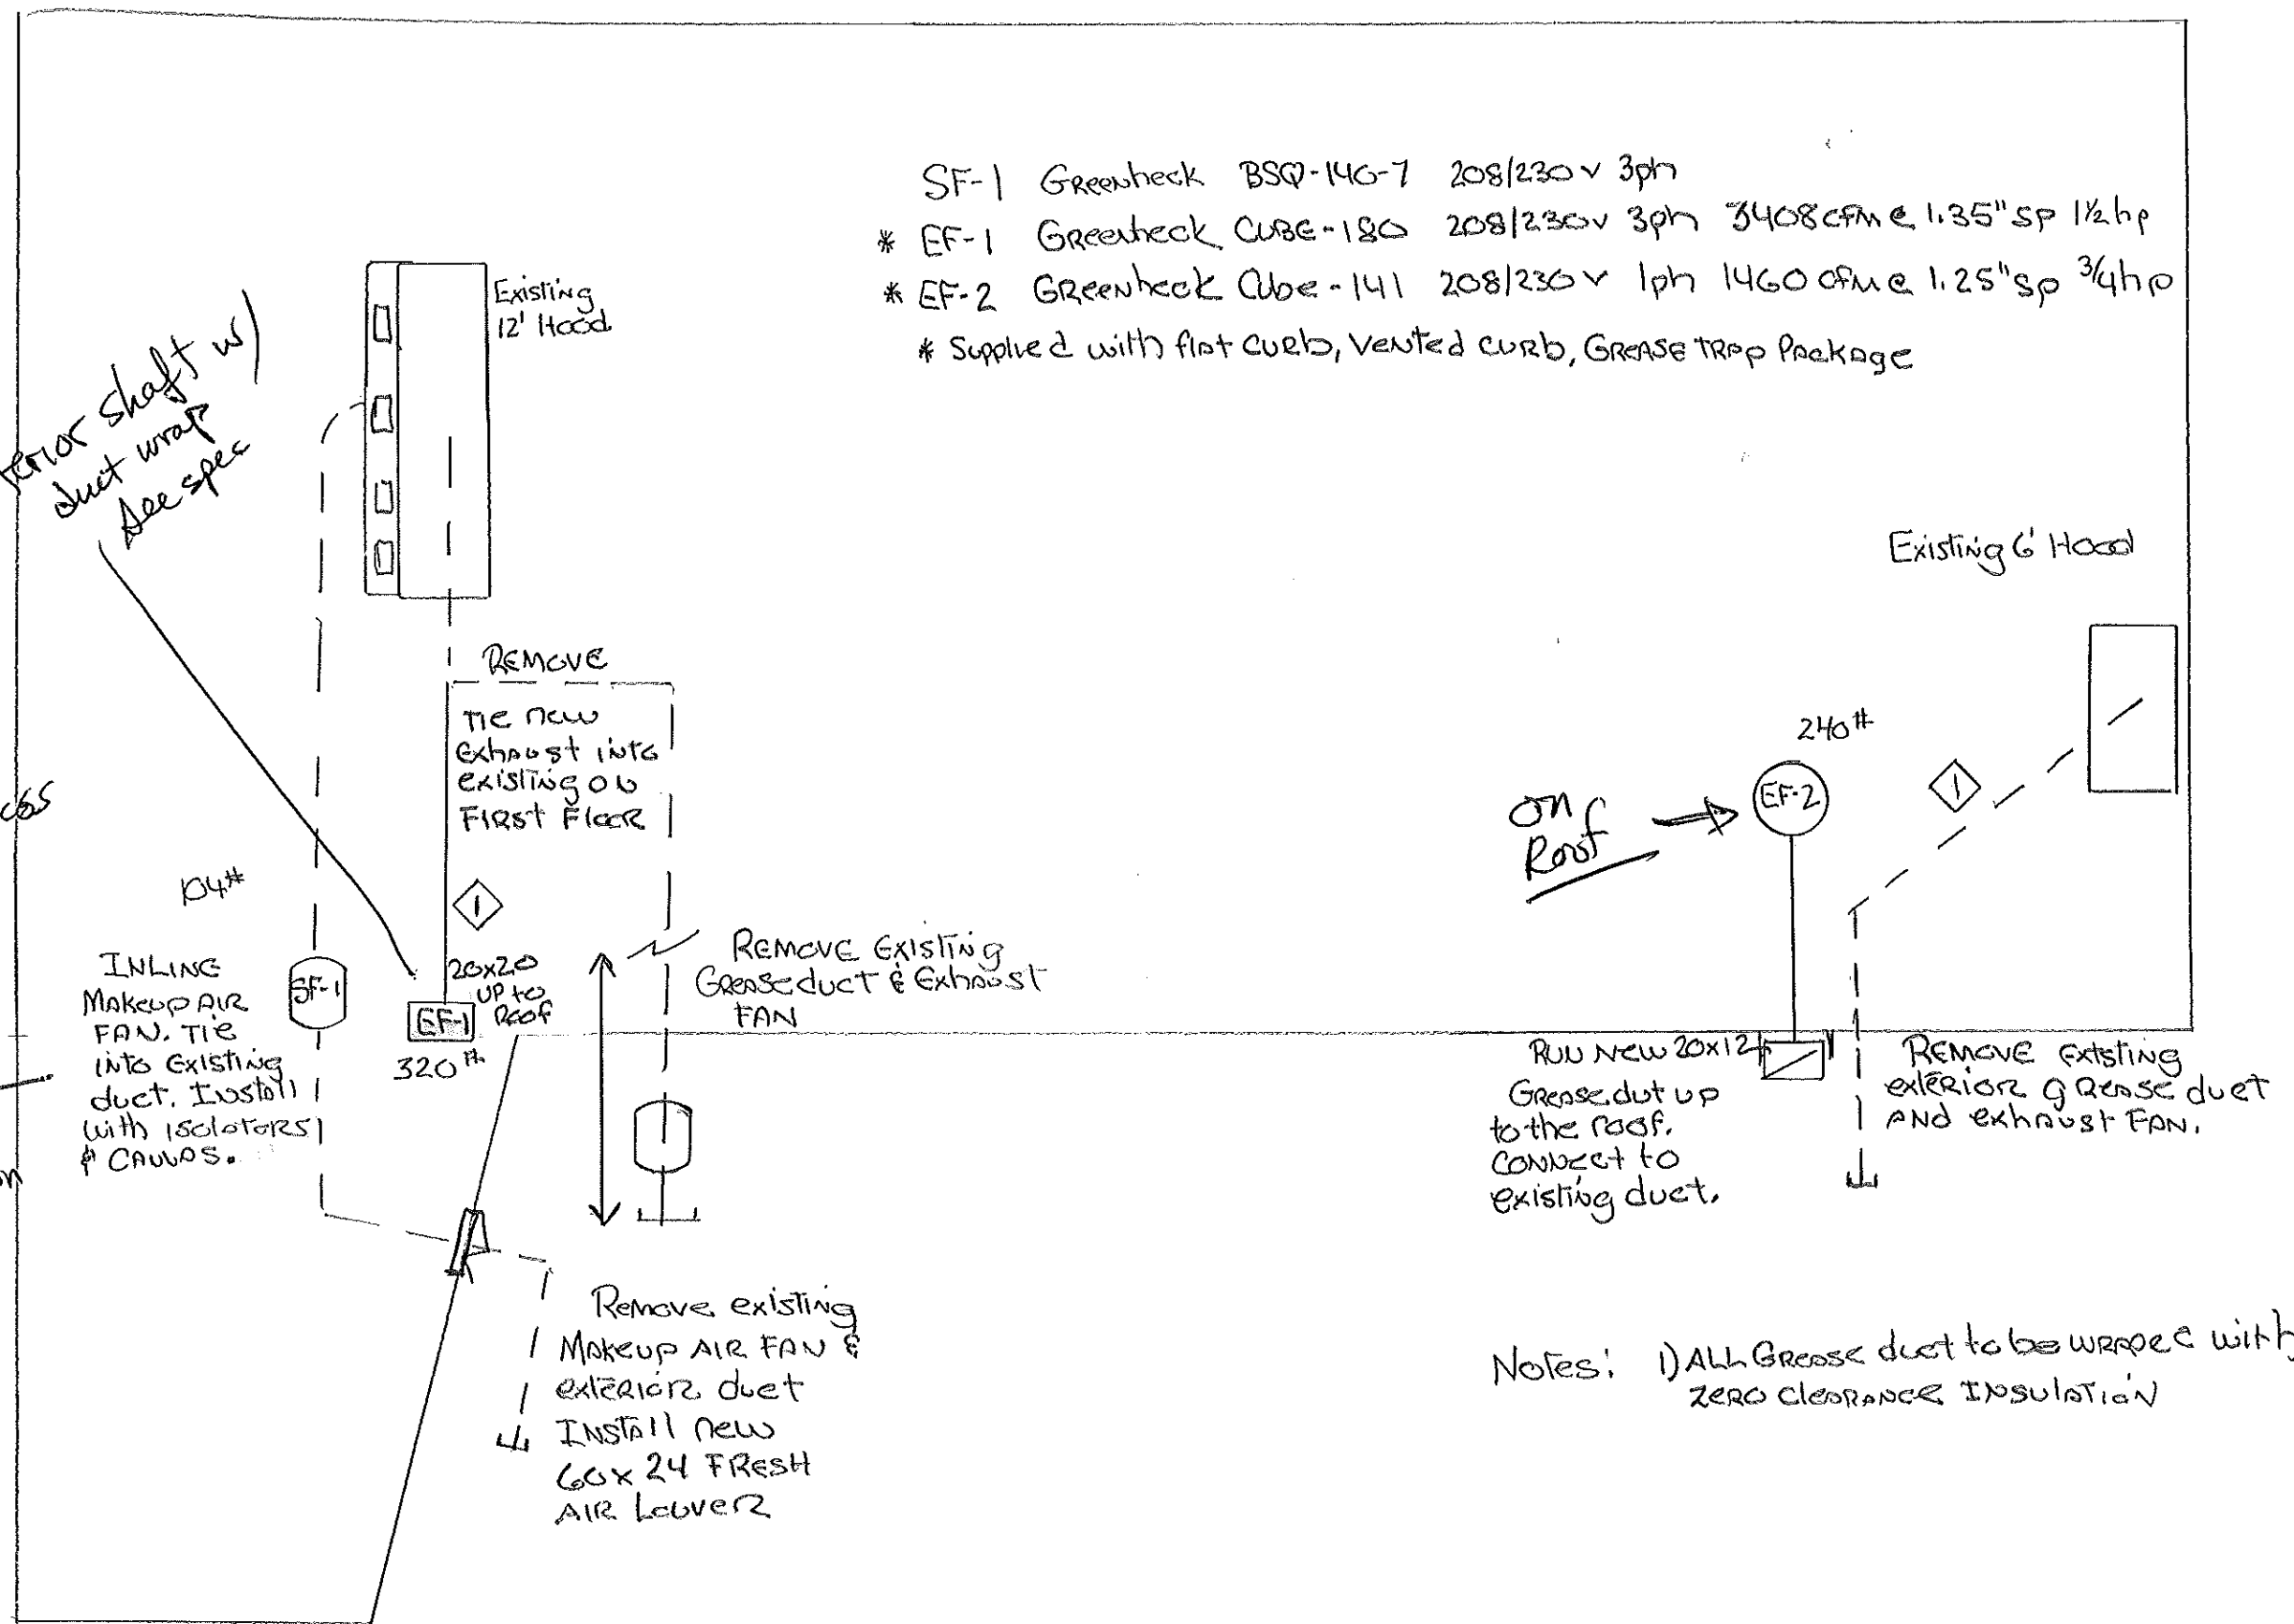 SF-1 Greenheck BSQ-140-7 208/230v 3ph
* EF-1 Greenheck CUBE-180 208/230v 3ph 3408 cfm @ 1.35" sp 1½ hp
* EF-2 Greenheck Cube-141 208/230v 1ph 1460 cfm @ 1.25" sp ¾ hp
* Supplied with flat curb, vented curb, Grease Trap Package
Existing
12' Hood
erior shaft w/
duct wrap
See spec
Existing 6' Hood
REMOVE
Tie new
exhaust into
existing on
First Floor
240#
EF-2
1
on
Roof
104#
1
INLINE
Makeup AIR
FAN. Tie
into Existing
duct. Install
with isolators
& CANVAS.
SF-1
20x20
UP to
Roof
EF-1
320#
REMOVE Existing
Grease duct & Exhaust
FAN
RUN New 20x12
Grease dut up
to the roof.
Connect to
existing duct.
REMOVE Existing
exterior grease duct
AND exhaust FAN.
Remove existing
Makeup AIR FAN &
exterior duct
Install new
60x24 FRESH
AIR Louver
Notes: 1) ALL Grease duct to be wraped with
zero Clearance INSULATION